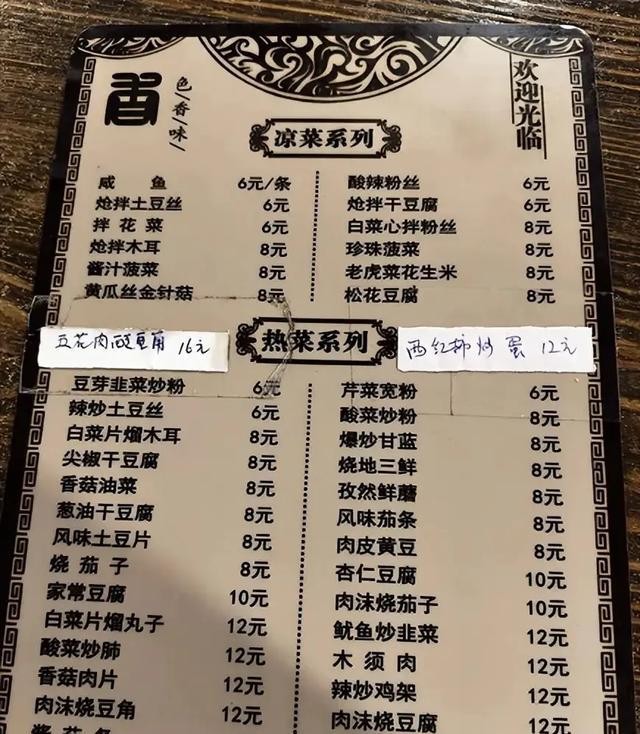 香
色/香/味/
欢迎光临
凉菜系列
咸鱼 6元/条
炝拌土豆丝 6元
拌花菜 6元
炝拌木耳 8元
酱汁菠菜 8元
黄瓜丝金针菇 8元
酸辣粉丝 6元
炝拌干豆腐 6元
白菜心拌粉丝 8元
珍珠菠菜 8元
老虎菜花生米 8元
松花豆腐 8元
五花肉酸豆角 16元
热菜系列
西红柿炒蛋 12元
豆芽韭菜炒粉 6元
辣炒土豆丝 6元
白菜片熘木耳 8元
尖椒干豆腐 8元
香菇油菜 8元
葱油干豆腐 8元
风味土豆片 8元
烧茄子 8元
家常豆腐 10元
白菜片熘丸子 12元
酸菜炒肺 12元
香菇肉片 12元
肉沫烧豆角 12元
芹菜宽粉 6元
酸菜炒粉 6元
爆炒甘蓝 8元
烧地三鲜 8元
孜然鲜蘑 8元
风味茄条 8元
肉皮黄豆 8元
杏仁豆腐 10元
肉沫烧茄子 10元
鱿鱼炒韭菜 12元
木须肉 12元
辣炒鸡架 12元
肉沫烧豆腐 12元